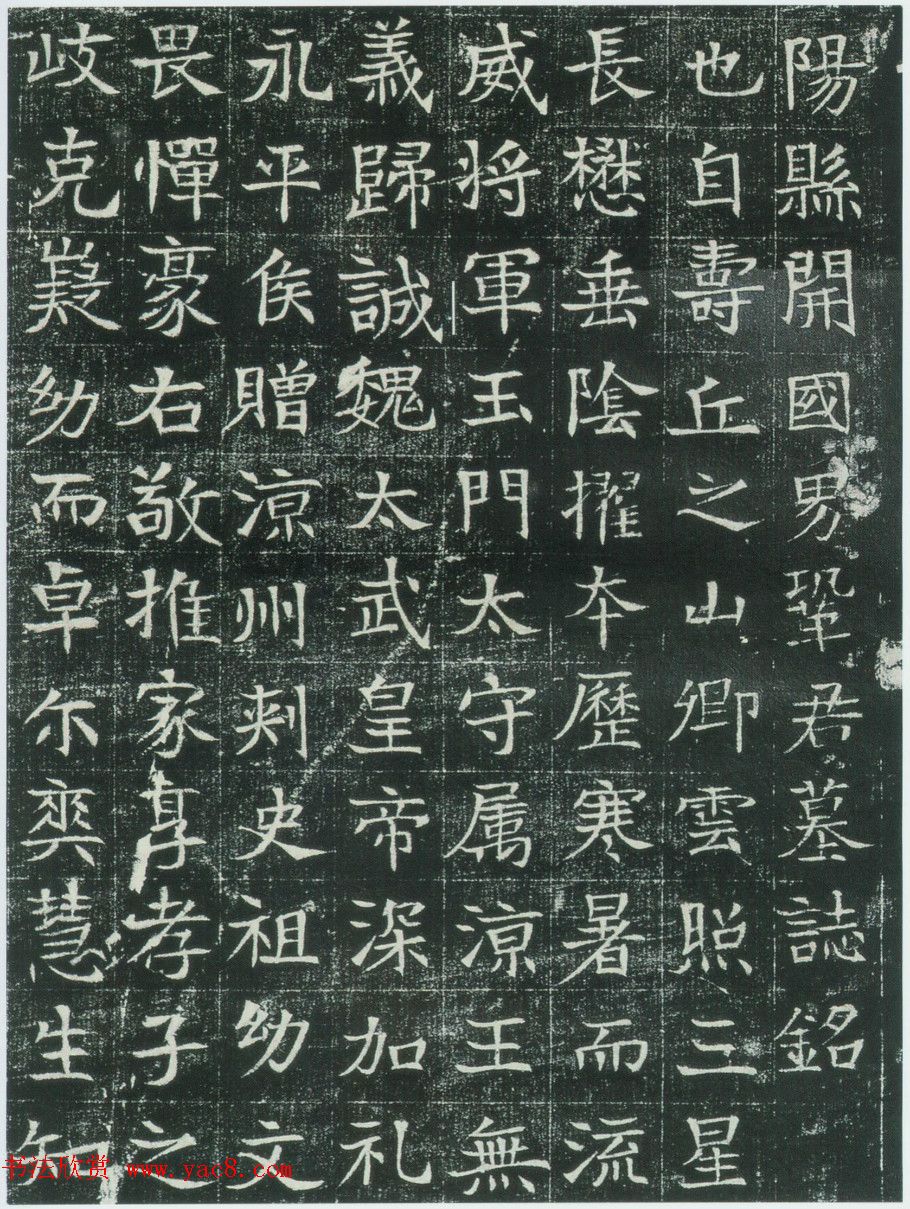 陽縣開國男鞏君墓誌銘
也自壽丘之山卿雲照三星
長懋垂陰擢夲歷寒暑而流
威将軍玉門太守属涼王無
義歸誠魏太武皇帝深加礼
永平侯贈涼州刾史祖幼文
畏憚豪右敬推家享孝子之
岐克嶷幼而卓尒奕慧生
书法欣赏 www.yac8.com